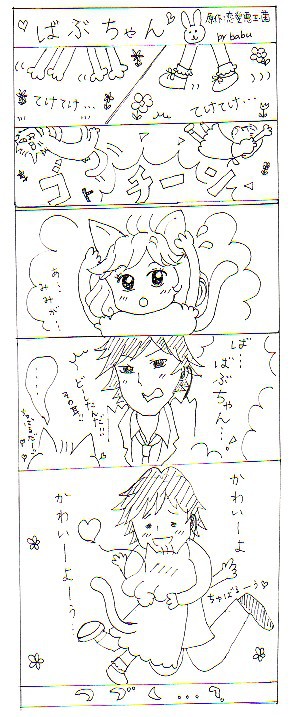 ♡ ばぶちゃん ♡
原作・恋愛悪玉菌
by babu
てけてけ…
てけてけ…
ゴッチーン
あ…
みみが…
ば…
ばぶちゃん…。
どーしたんだ!!
その耳!!
……
かわいーよ
かわいーよーう…
ちゅばるーう♡
つづく…。